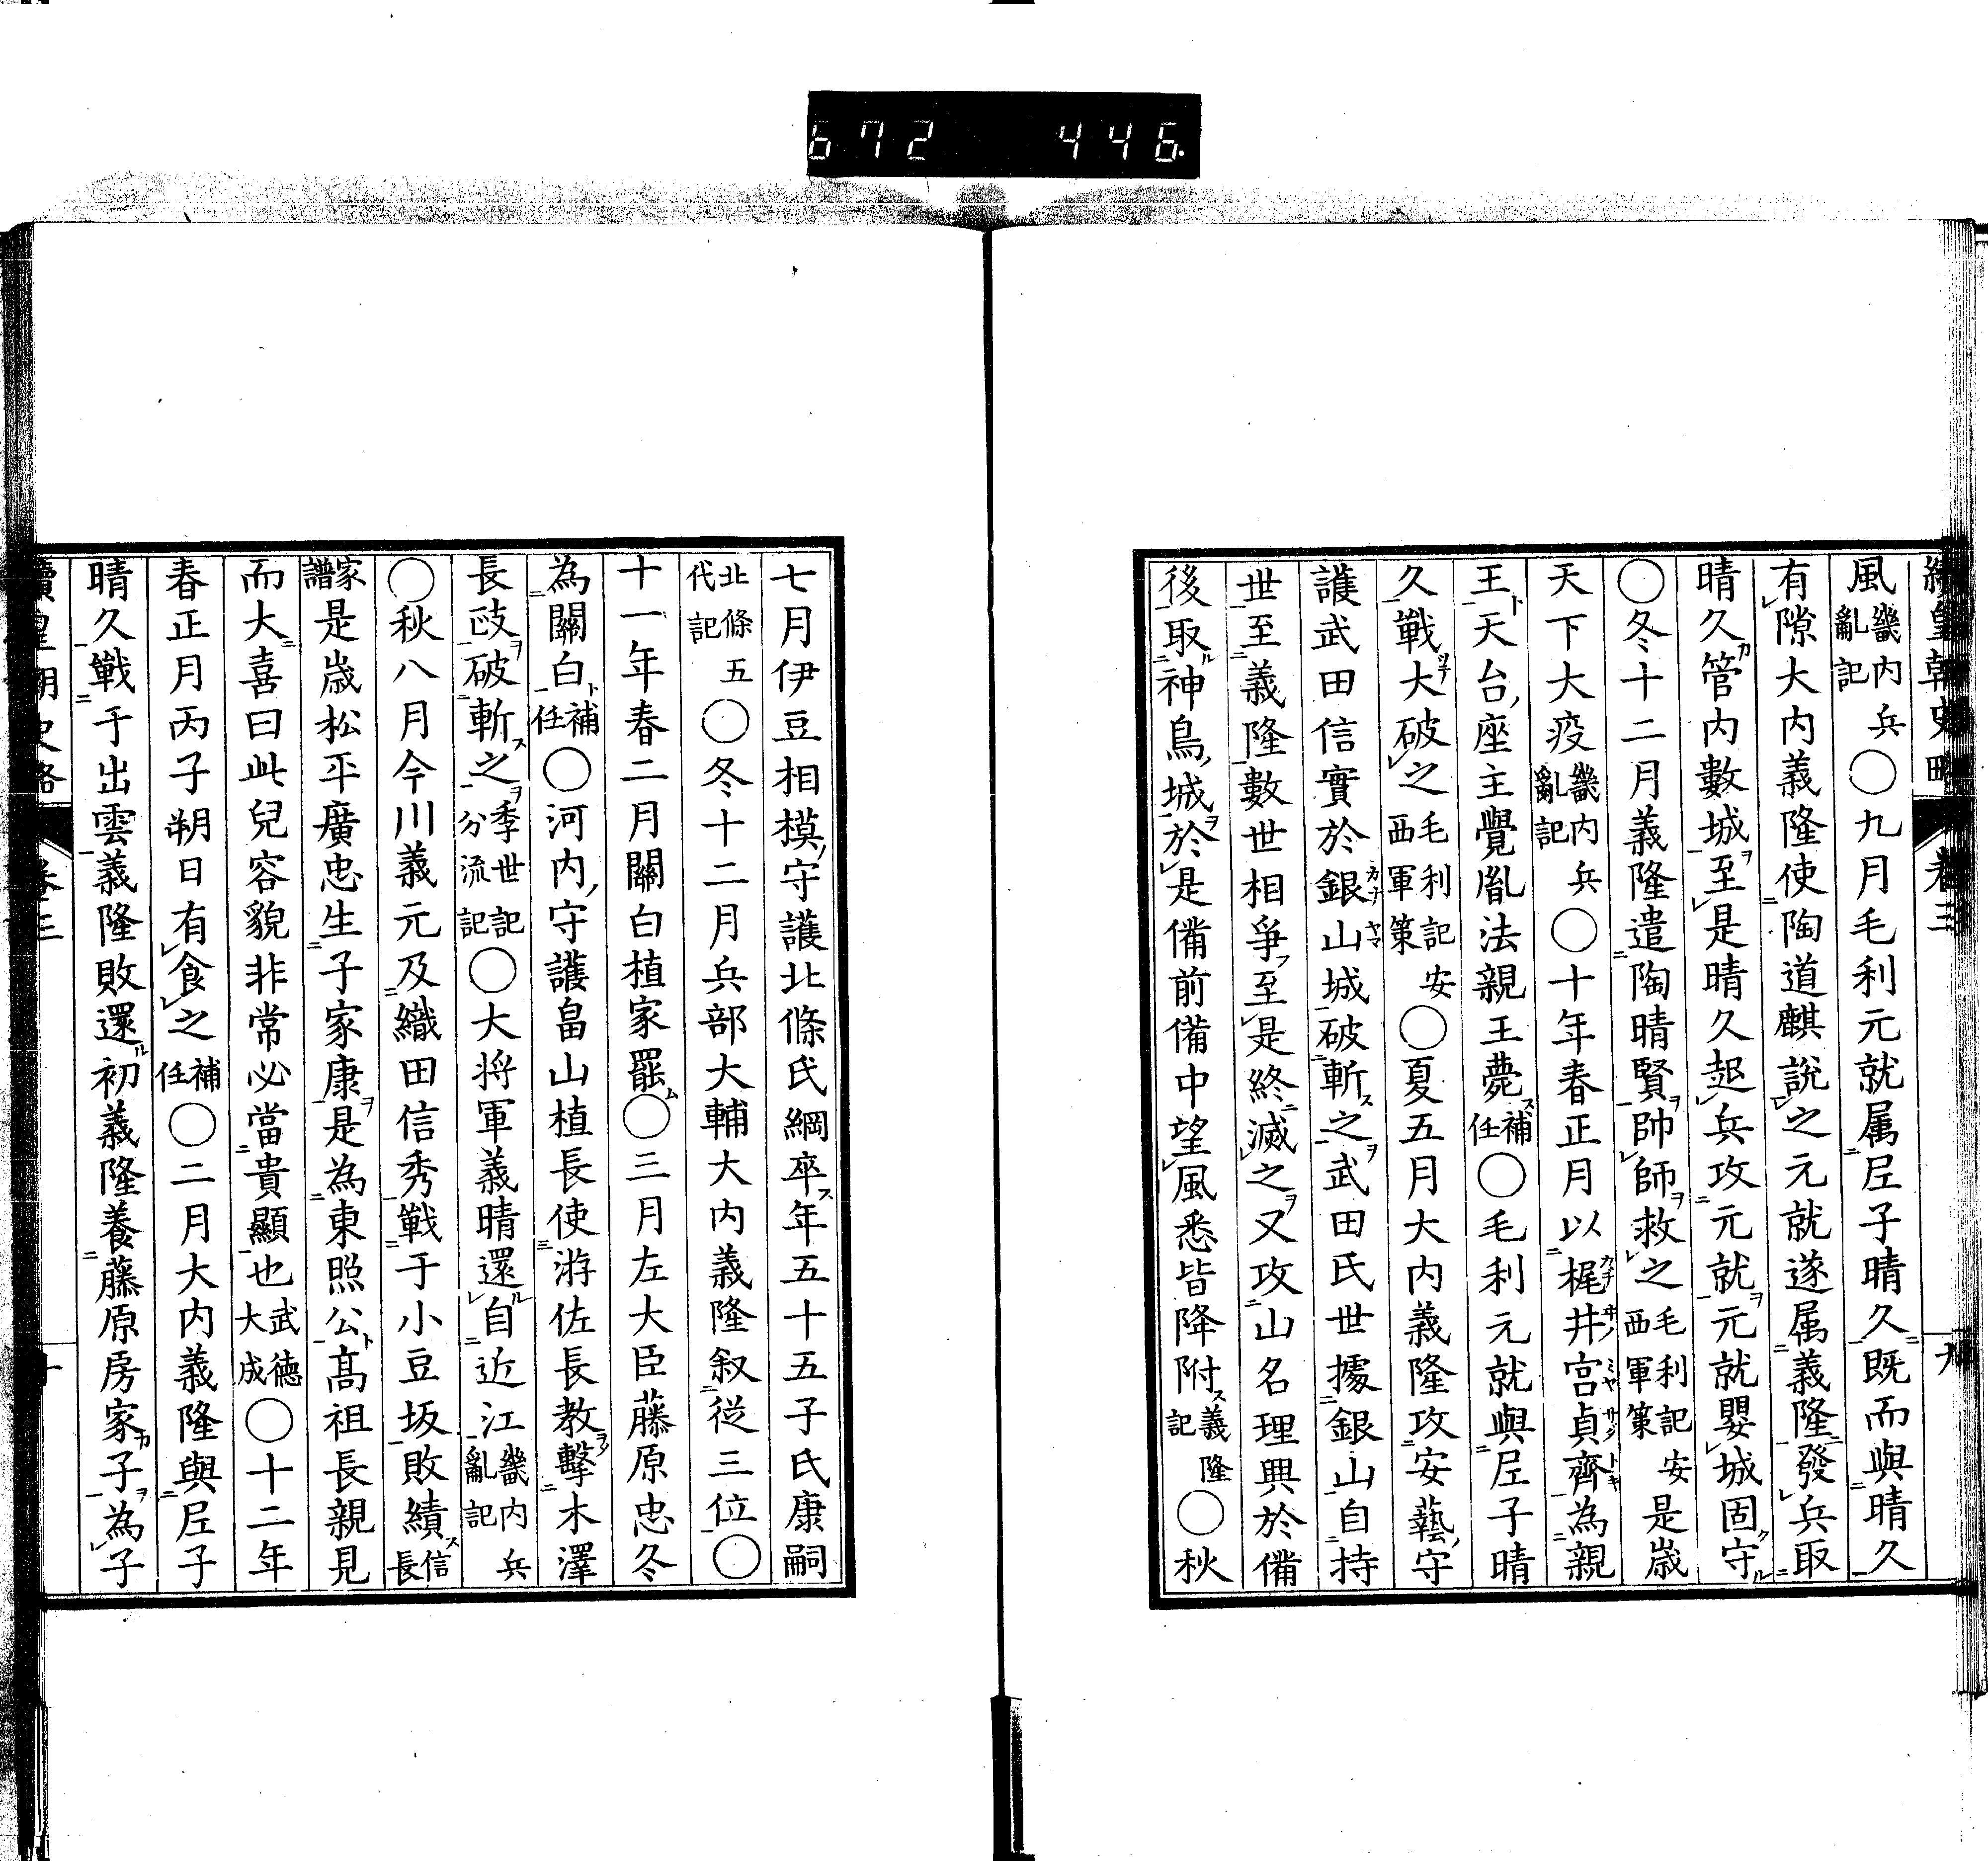 672 446
續皇朝史略 卷三 九
風畿內兵亂記〇九月毛利元就属尼子晴久既而與晴久
有隙大內義隆使陶道麒說之元就遂属義隆發兵取
晴久管內數城至是晴久起兵攻元就元就嬰城固守
〇冬十二月義隆遣陶晴賢帥師救之毛利記安西軍策是歲
天下大疫畿內兵亂記〇十年春正月以梶井宮貞齊為親
王天台座主覺胤法親王薨補任〇毛利元就與尼子晴
久戰大破之毛利記安西軍策〇夏五月大內義隆攻安藝守
護武田信實於銀山城破斬之武田氏世據銀山自持
世至義隆數世相爭至是終滅之又攻山名理興於備
後取神鳥城於是備前備中望風悉皆降附義隆記〇秋
七月伊豆相模守護北條氏綱卒年五十五子氏康嗣
北條五代記〇冬十二月兵部大輔大內義隆叙從三位〇
十一年春二月關白植家罷〇三月左大臣藤原忠冬
為關白補任〇河內守護畠山植長使游佐長教擊木澤
長政破斬之季世記分流記〇大将軍義晴還自近江畿內兵亂記
〇秋八月今川義元及織田信秀戰于小豆坂敗績信長
家譜是歲松平廣忠生子家康是為東照公高祖長親見
而大喜曰此兒容貌非常必當貴顯也武德大成〇十二年
春正月丙子朔日有食之補任〇二月大內義隆與尼子
晴久戰于出雲義隆敗還初義隆養藤原房家子為子
續皇朝史略 卷三 十